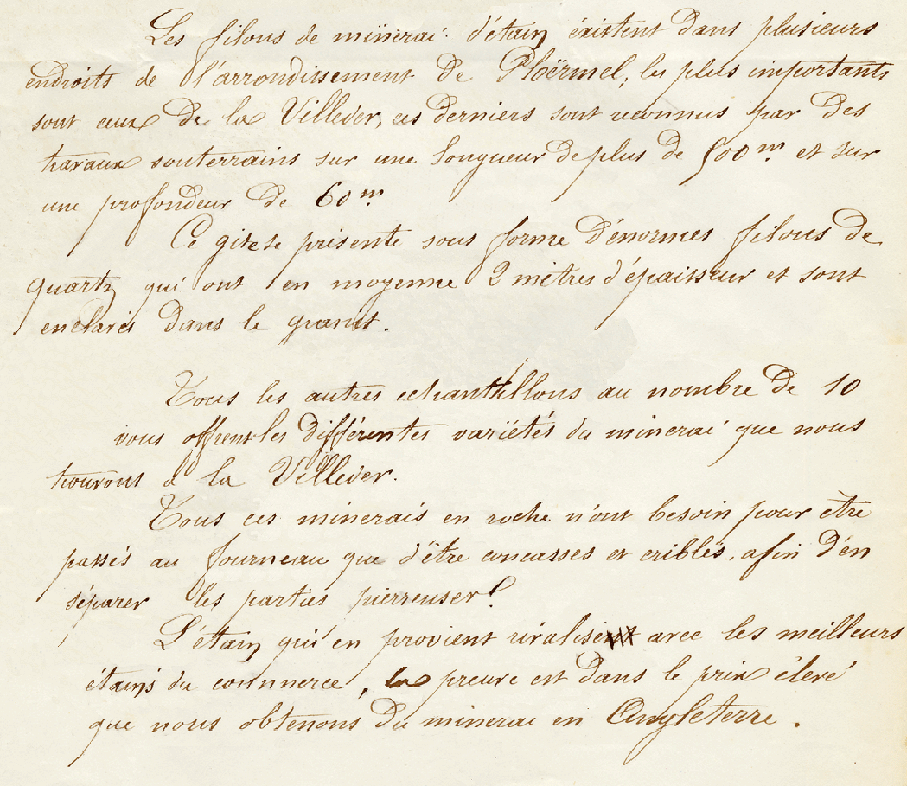 Les filons de minerai d'étain éxistent dans plusieurs
endroits de l'arrondissement de Ploërmel, les plus importants
sont ceux de la Villeder, ces derniers sont reconnus par des
travaux souterrains sur une longueur de plus de 500 m. et sur
une profondeur de 60 m.
Ce gite se présente sous forme d'énormes filons de
quartz qui ont en moyenne 2 mètres d'épaisseur et sont
enclavés dans le granit.
Tous les autres echantillons au nombre de 10
vous offrent les différentes variétés du minerai que nous
trouvons à la Villeder.
Tous ces minerais en roche n'ont besoin pour être
passés au fourneau que d'être concassés et criblés, afin d'en
séparer les parties pierreuses.
L'étain qui en provient rivalise avec les meilleurs
étains du commerce, la preuve est dans le prix élevé
que nous obtenons du minerai en Angleterre.